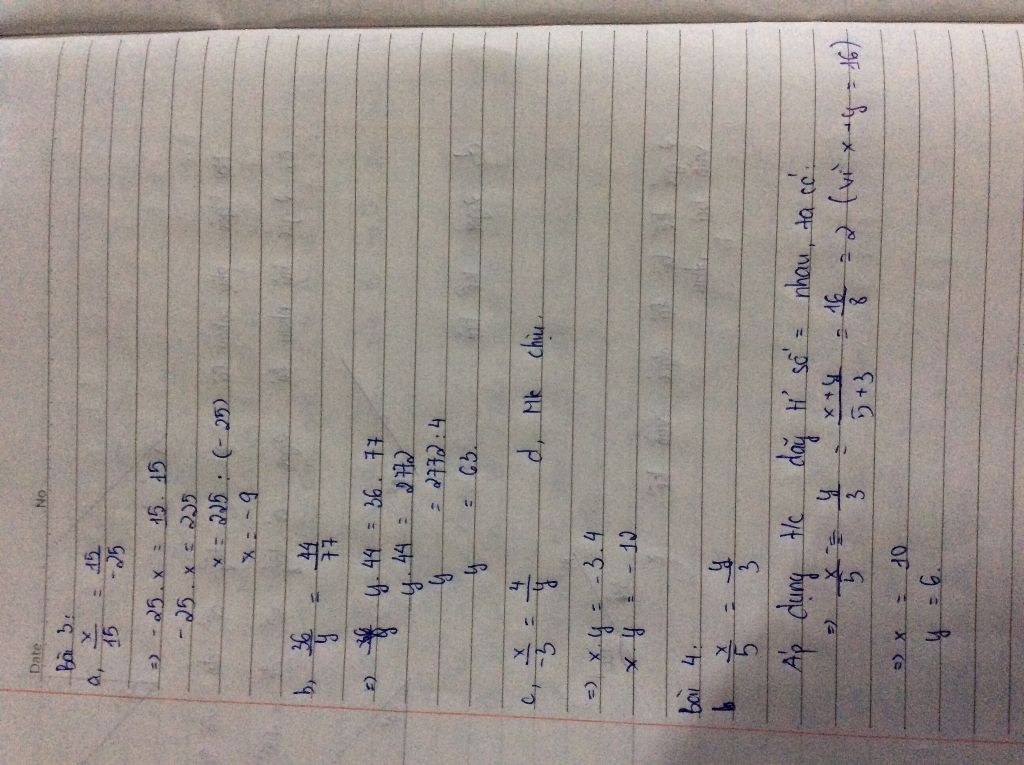 Date No
Bài 3:
a, x/15 = 15/-25
=> -25 . x = 15 . 15
-25 . x = 225
x = 225 : (-25)
x = -9
b, 36/y = 44/77
=> y . 44 = 36 . 77
y . 44 = 2772
y = 2772 : 4
y = 63.
c, x/-3 = 4/y d, Mk chịu.
=> x y = -3 . 4
x . y = -12
Bài 4.
x/5 = y/3
Áp dụng t/c dãy tỉ số = nhau, ta có:
=> x/5 = y/3 = x+y/5+3 = 16/8 = 2 (vì x + y = 16)
=> x = 10
y = 6.